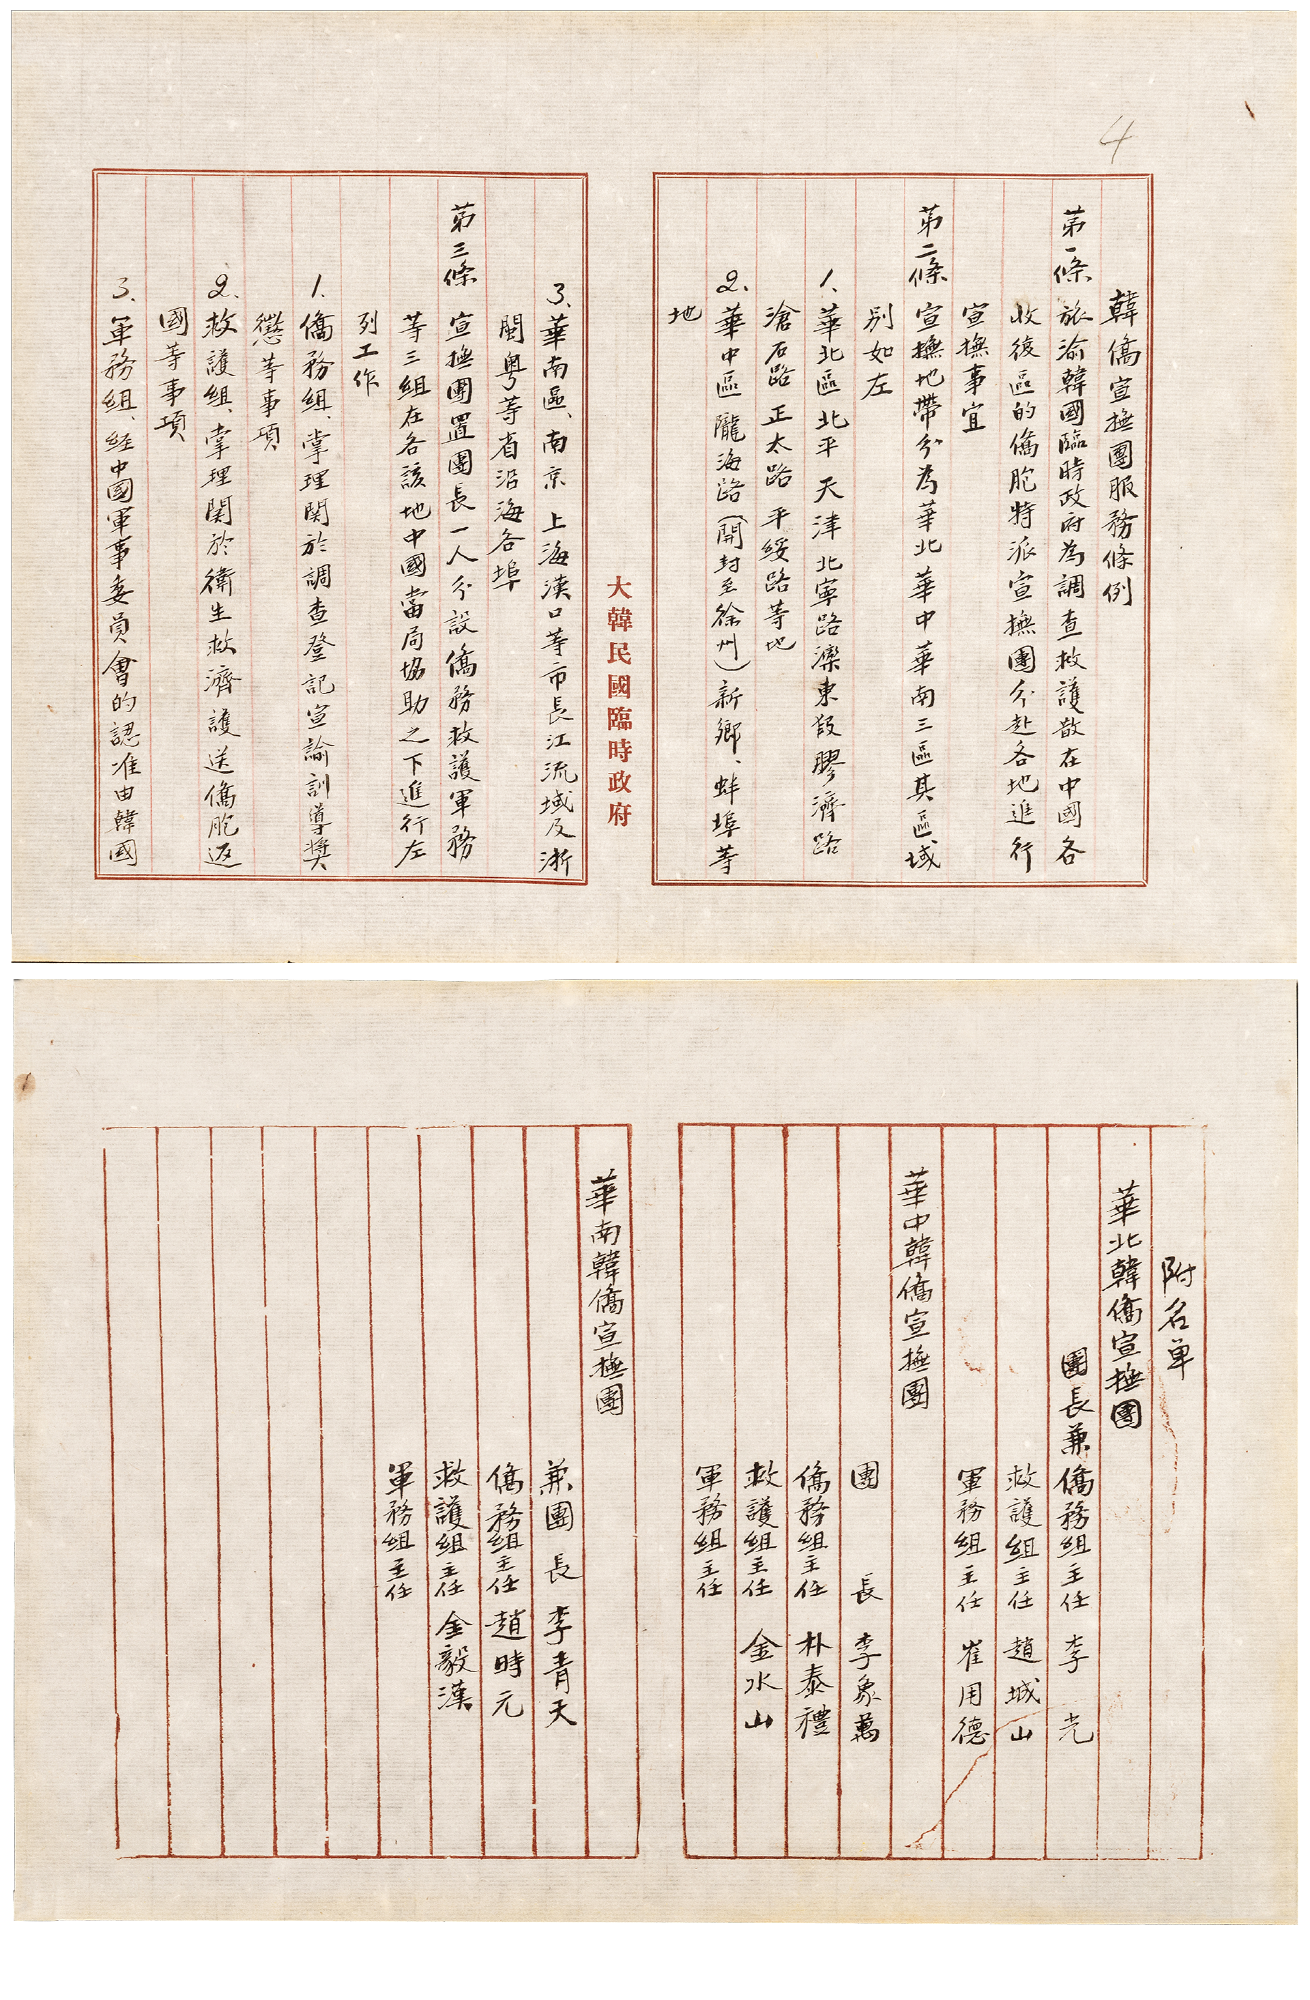 4
韓僑宣撫團服務條例
第一條 旅渝韓國臨時政府為調查救護散在中國各
收復區的僑胞特派宣撫團分赴各地進行
宣撫事宜
第二條 宣撫地帶分為華北 華中 華南三區其區域
別如左
1、華北區 北平 天津 北寧路灤東段膠濟路
滄石路 正太路 平綏路等地
2、華中區 隴海路(開封至徐州)新鄉、蚌埠等
地
大韓民國臨時政府
3、華南區、南京 上海漢口等市長江流域及浙
閩粵等省沿海各埠
第三條 宣撫團置團長一人分設僑務救護軍務
等三組在各該地中國當局協助之下進行左
列工作
1、僑務組、掌理関於調查登記宣諭訓導獎
懲等事項
2、救護組、掌理関於衛生救濟護送僑胞返
國等事項
3、軍務組、経中國軍事委員會的認准由韓國
附名單
華北韓僑宣撫團
團長兼僑務組主任 李 光
救護組主任 趙城山
軍務組主任 崔用德
華中韓僑宣撫團
團 長 李象萬
僑務組主任 朴泰禮
救護組主任 金水山
軍務組主任
華南韓僑宣撫團
兼團 長 李青天
僑務組主任 趙時元
救護組主任 金毅漢
軍務組主任